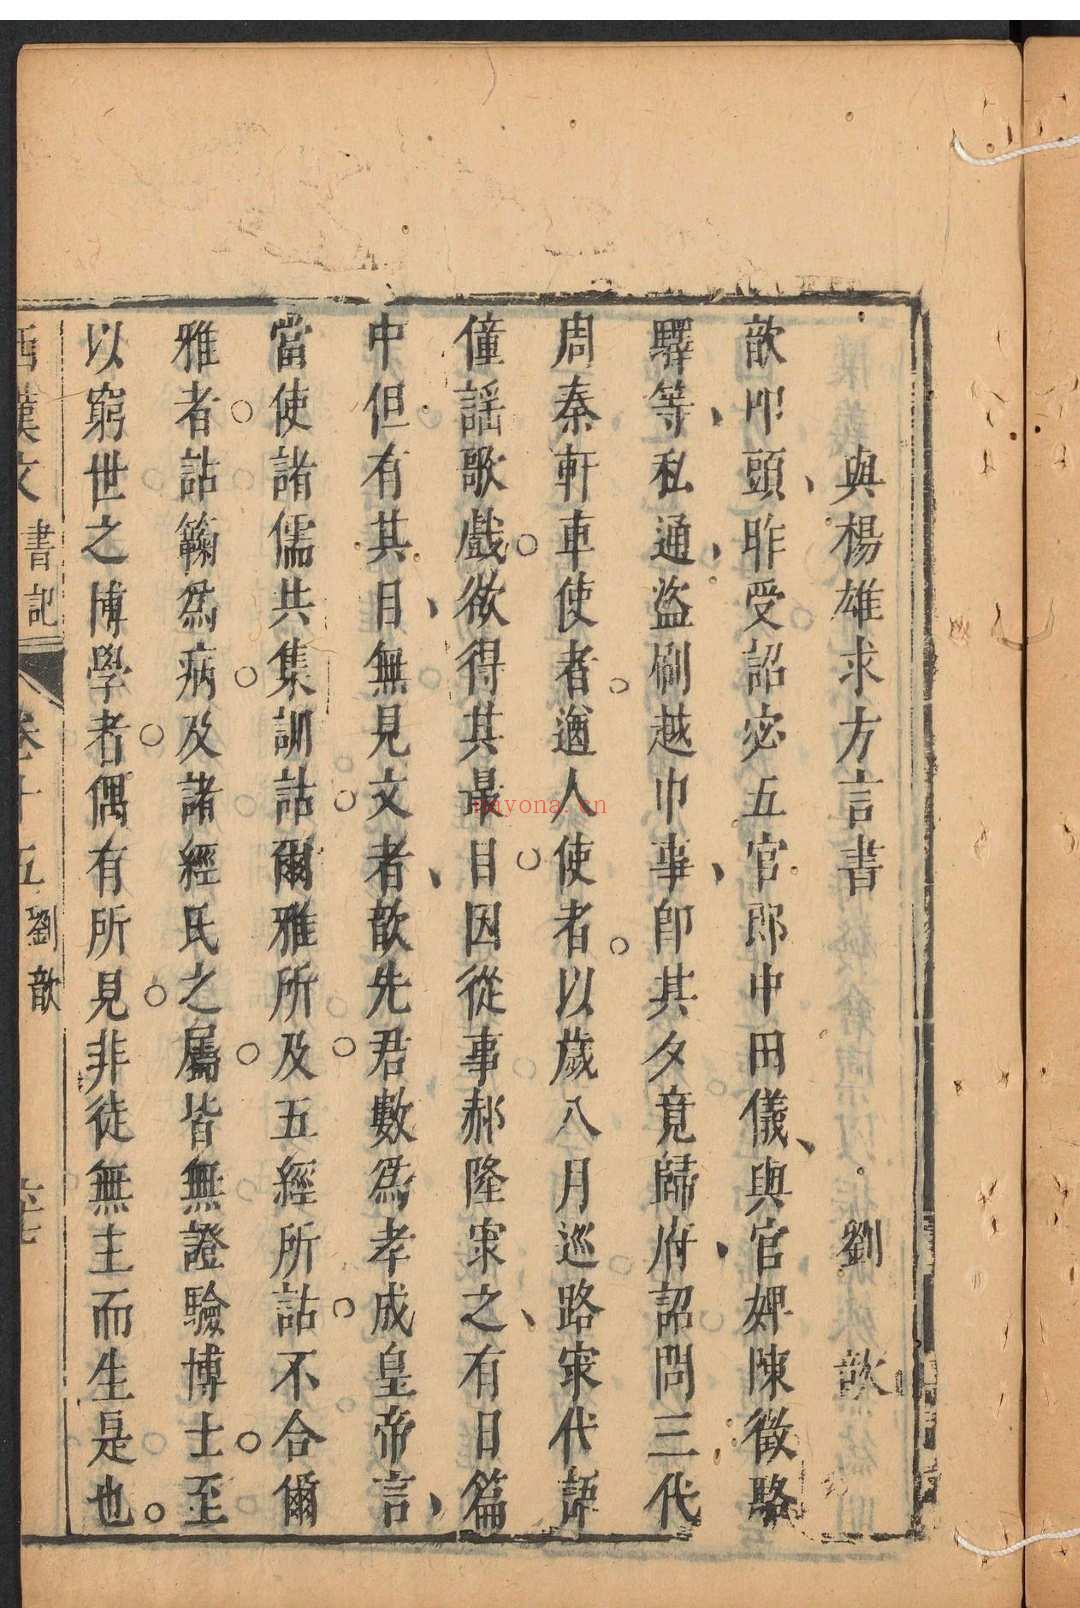 與楊雄求方言書 劉歆
歆叩頭昨受詔宓五官郎中田儀與官婢陳徵駱
驛等私通盜刷越巾事即其夕竟歸府詔問三代
周秦軒車使者遒人使者以歲八月巡路宷代語
僮謡歌戲欲得其最目因從事郝隆宷之有日篇
中但有其目無見文者歆先君數爲孝成皇帝言
當使諸儒共集訓詁爾雅所及五經所詁不合爾
雅者詁籟爲病及諸經氏之屬皆無證驗博士至
以窮世之博學者偶有所見非徒無主而生是也
西漢文 書記 卷十五 劉歆
nayona.cn